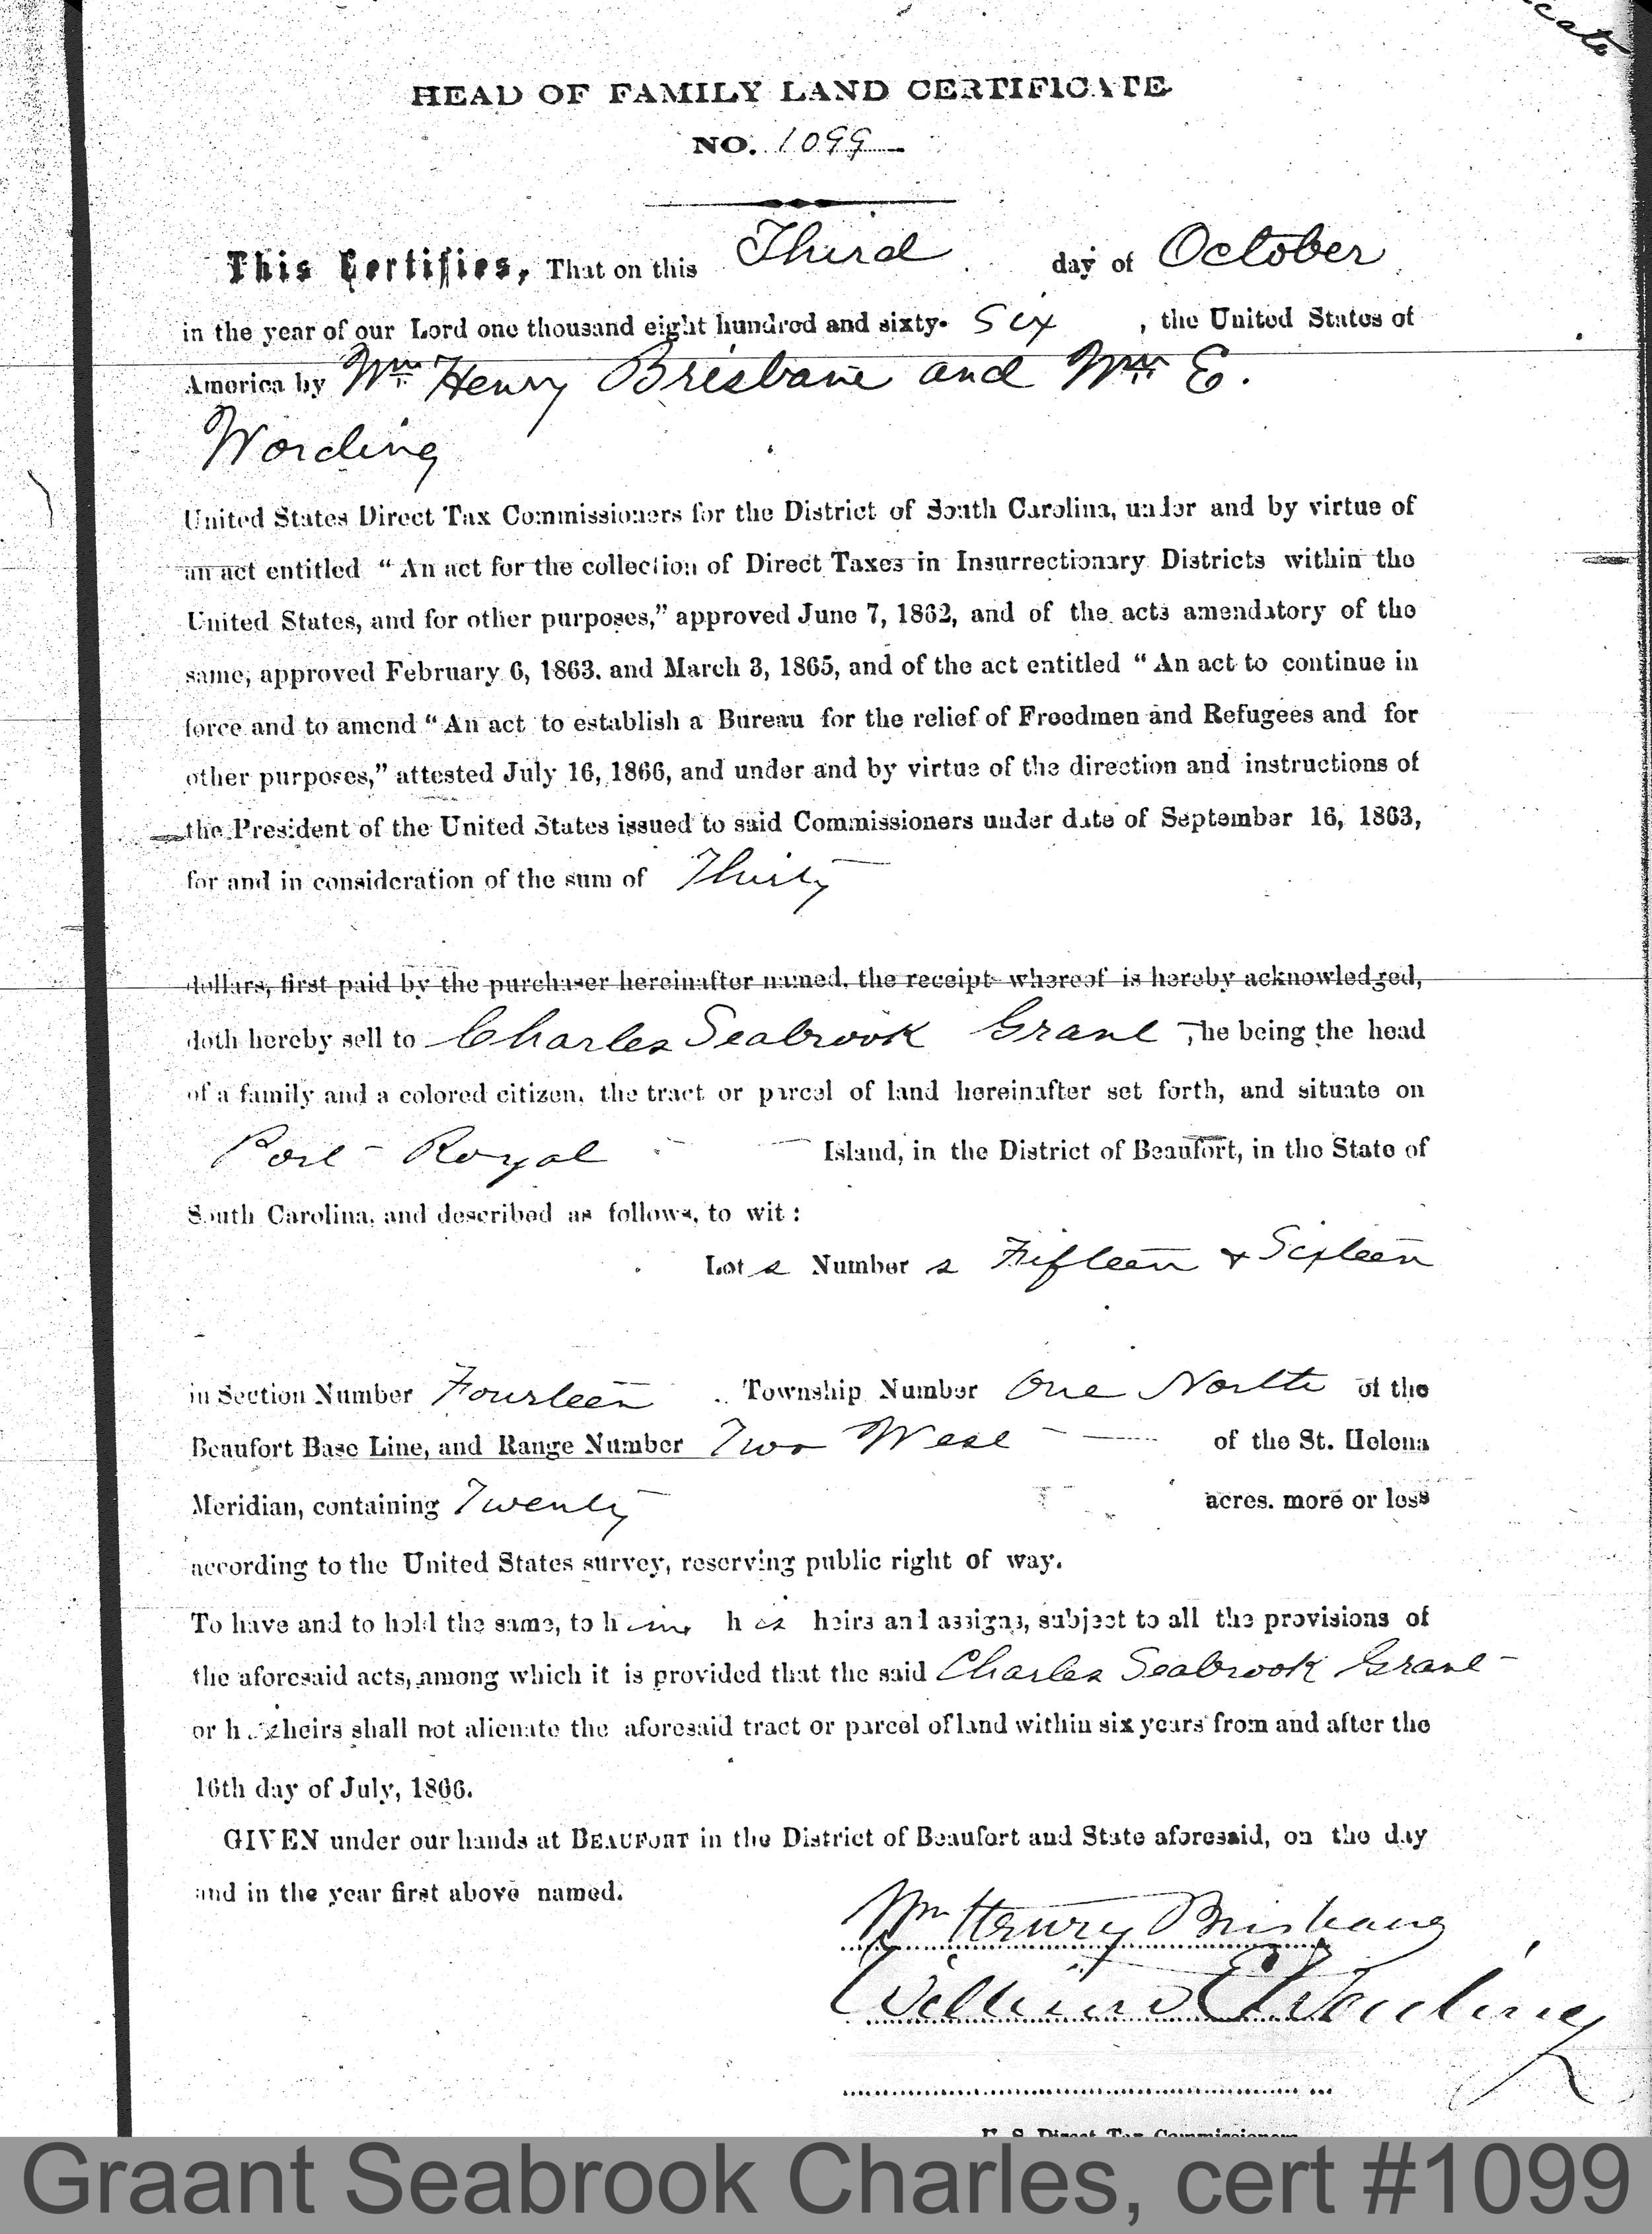 cate
HEAD OF FAMILY LAND CERTIFICATE
NO. 1099
This Certifies, That on this Third day of October
in the year of our Lord one thousand eight hundred and sixty- Six , the United States of
America by Wm. Henry Brisbane and Wm. E.
Wording
United States Direct Tax Commissioners for the District of South Carolina, under and by virtue of
an act entitled “ An act for the collection of Direct Taxes in Insurrectionary Districts within the
United States, and for other purposes,” approved June 7, 1862, and of the acts amendatory of the
same, approved February 6, 1863. and March 3, 1865, and of the act entitled “ An act to continue in
force and to amend “ An act to establish a Bureau for the relief of Freedmen and Refugees and for
other purposes,” attested July 16, 1866, and under and by virtue of the direction and instructions of
the President of the United States issued to said Commissioners under date of September 16, 1863,
for and in consideration of the sum of Thirty
dollars, first paid by the purchaser hereinafter named, the receipt whereof is hereby acknowledged,
doth hereby sell to Charles Seabrook Grant , he being the head
of a family and a colored citizen, the tract or parcel of land hereinafter set forth, and situate on
Port Royal Island, in the District of Beaufort, in the State of
South Carolina, and described as follows, to wit :
Lots Numbers Fifteen & Sixteen
in Section Number Fourteen Township Number One North of the
Beaufort Base Line, and Range Number Two West of the St. Helena
Meridian, containing Twenty acres. more or less
according to the United States survey, reserving public right of way.
To have and to hold the same, to him his heirs and assigns, subject to all the provisions of
the aforesaid acts, among which it is provided that the said Charles Seabrook Grant
or his heirs shall not alienate the aforesaid tract or parcel of land within six years from and after the
16th day of July, 1866.
GIVEN under our hands at BEAUFORT in the District of Beaufort and State aforesaid, on the day
and in the year first above named.
Wm Henry Brisbane
William E Wording
U. S. Direct Tax Commissioners
Graant Seabrook Charles, cert #1099